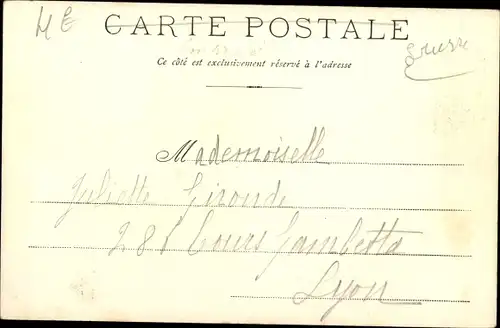 CARTE POSTALE
Ce côté est exclusivement réservé à l'adresse
Mademoiselle
Juliette Gironde
281 Cours Gambetta
Lyon